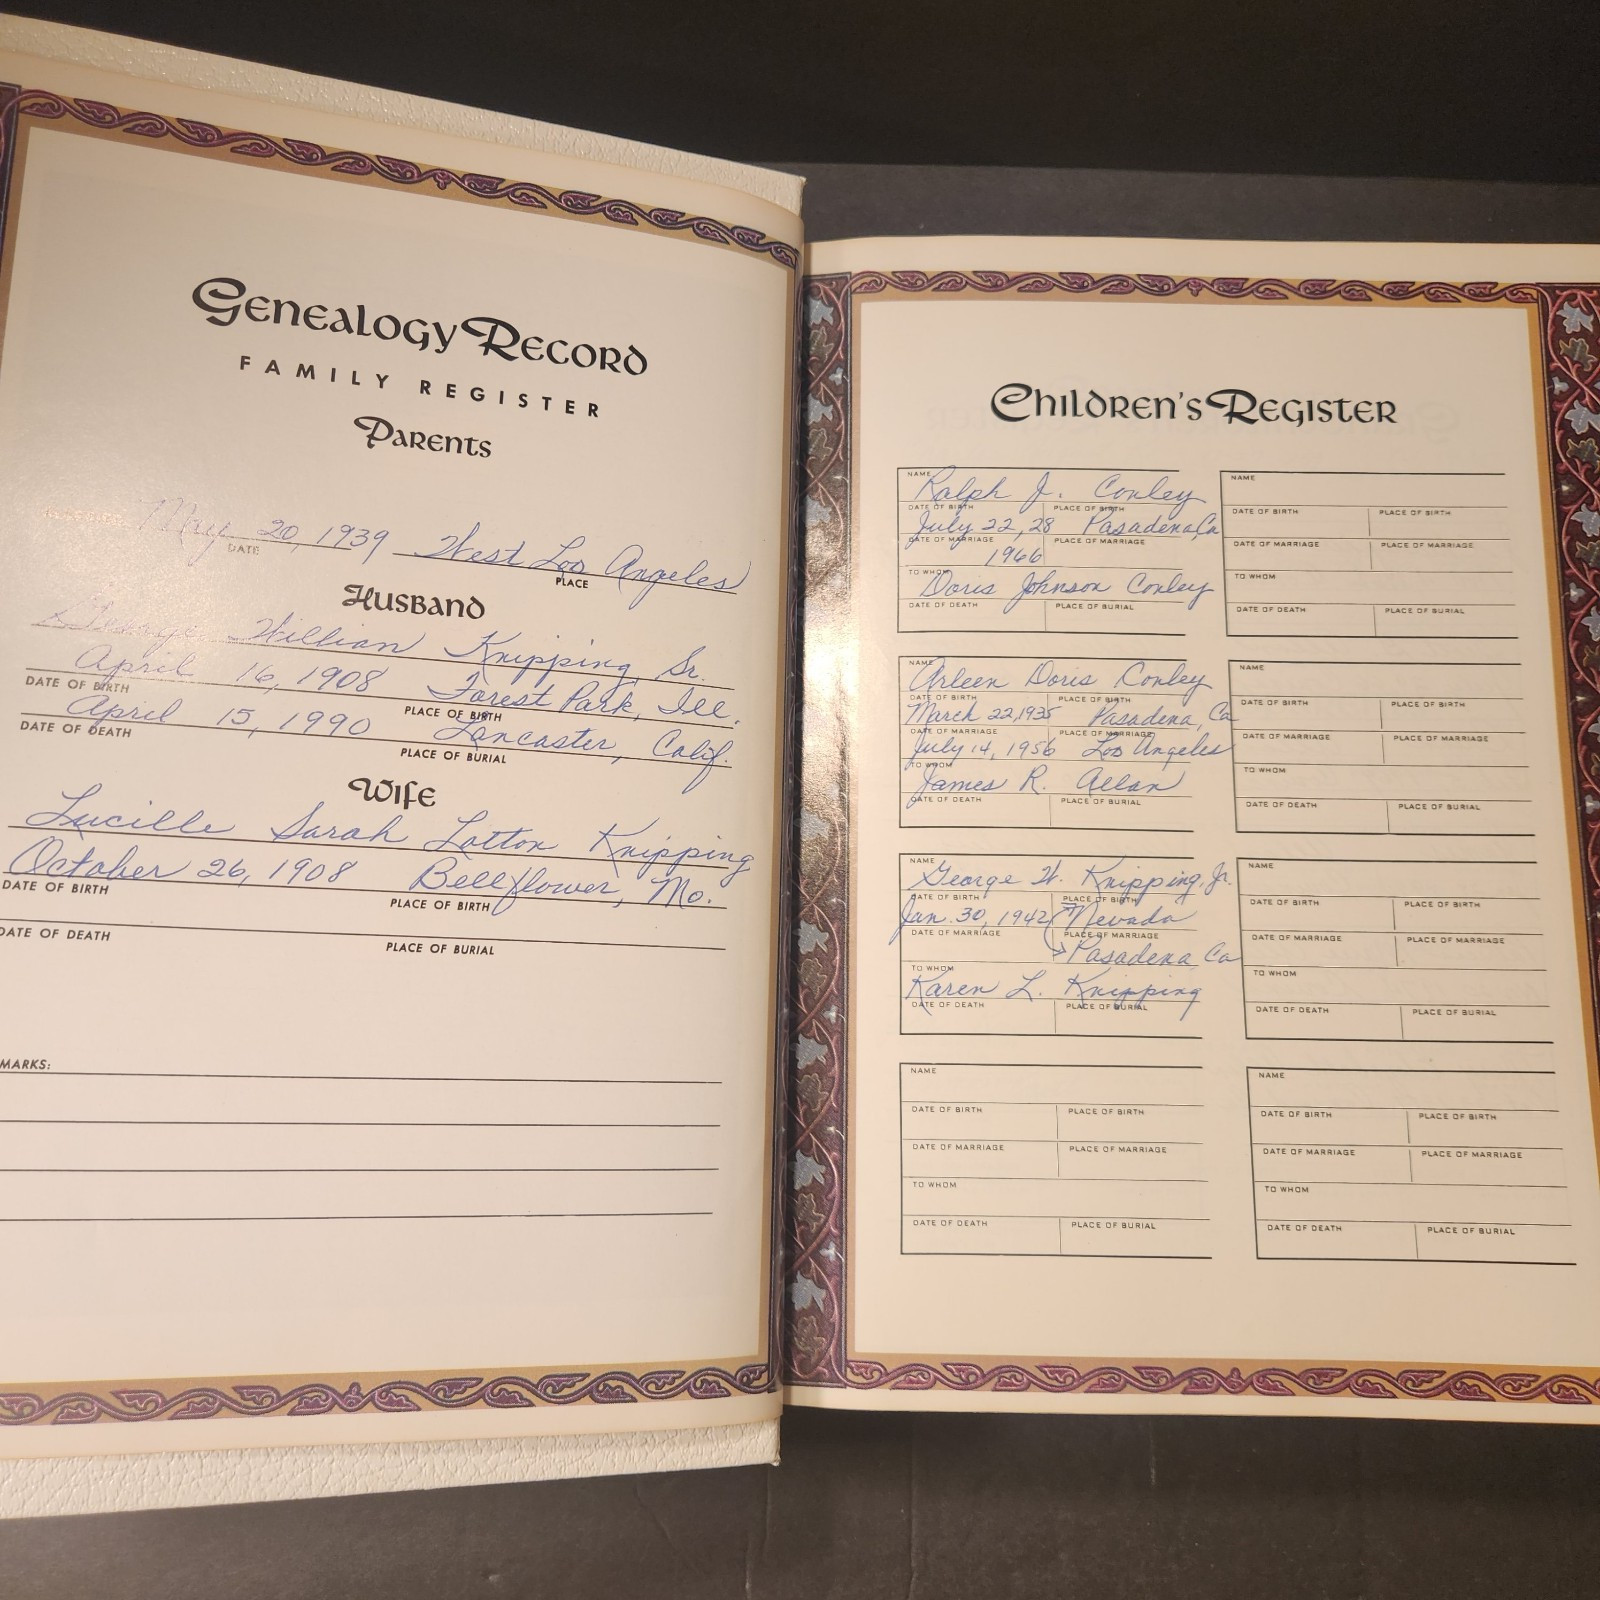 Genealogy Record
FAMILY REGISTER
Parents
May 20, 1939 West Los Angeles
DATE PLACE
Husband
George William Knipping, Sr.
April 16, 1908 Forest Park, Ill.
DATE OF BIRTH PLACE OF BIRTH
April 15, 1990 Lancaster, Calif.
DATE OF DEATH PLACE OF BURIAL
Wife
Lucille Sarah Lotton Knipping
October 26, 1908 Bellflower, Mo.
DATE OF BIRTH PLACE OF BIRTH
DATE OF DEATH PLACE OF BURIAL
MARKS:
Children's Register
NAME
Ralph J. Conley
DATE OF BIRTH PLACE OF BIRTH
July 22, 28 Pasadena, Ca
DATE OF MARRIAGE PLACE OF MARRIAGE
1966
TO WHOM
Doris Johnson Conley
DATE OF DEATH PLACE OF BURIAL
NAME
Arleen Doris Conley
DATE OF BIRTH PLACE OF BIRTH
March 22, 1935 Pasadena, Ca
DATE OF MARRIAGE PLACE OF MARRIAGE
July 14, 1956 Los Angeles
TO WHOM
James R. Allan
DATE OF DEATH PLACE OF BURIAL
NAME
George W. Knipping, Jr.
DATE OF BIRTH PLACE OF BIRTH
Jan. 30, 1942 Nevada
DATE OF MARRIAGE PLACE OF MARRIAGE
Pasadena Ca
TO WHOM
Karen L. Knipping
DATE OF DEATH PLACE OF BURIAL
NAME
DATE OF BIRTH PLACE OF BIRTH
DATE OF MARRIAGE PLACE OF MARRIAGE
TO WHOM
DATE OF DEATH PLACE OF BURIAL
NAME
DATE OF BIRTH PLACE OF BIRTH
DATE OF MARRIAGE PLACE OF MARRIAGE
TO WHOM
DATE OF DEATH PLACE OF BURIAL
NAME
DATE OF BIRTH PLACE OF BIRTH
DATE OF MARRIAGE PLACE OF MARRIAGE
TO WHOM
DATE OF DEATH PLACE OF BURIAL
NAME
DATE OF BIRTH PLACE OF BIRTH
DATE OF MARRIAGE PLACE OF MARRIAGE
TO WHOM
DATE OF DEATH PLACE OF BURIAL
NAME
DATE OF BIRTH PLACE OF BIRTH
DATE OF MARRIAGE PLACE OF MARRIAGE
TO WHOM
DATE OF DEATH PLACE OF BURIAL